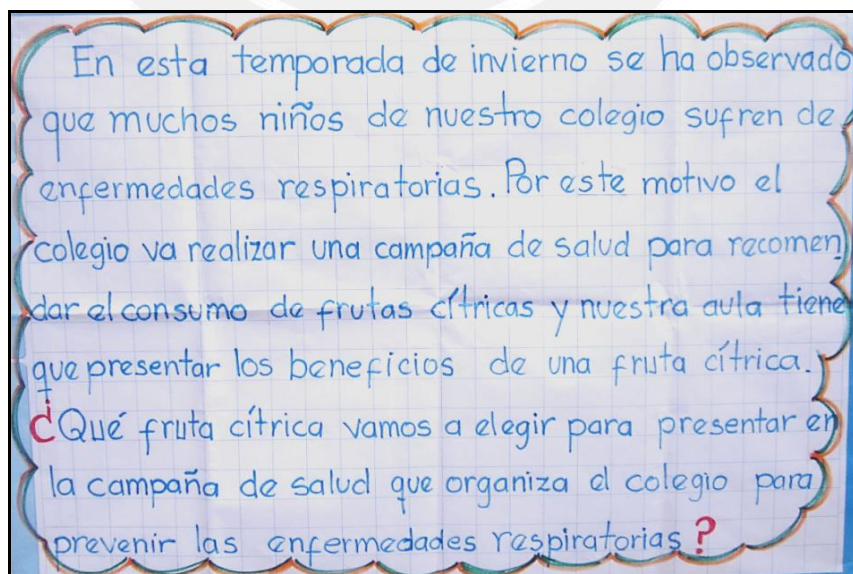 En esta temporada de invierno se ha observado
que muchos niños de nuestro colegio sufren de
enfermedades respiratorias. Por este motivo el
colegio va realizar una campaña de salud para recomen
dar el consumo de frutas cítricas y nuestra aula tiene
que presentar los beneficios de una fruta cítrica.
¿Qué fruta cítrica vamos a elegir para presentar en
la campaña de salud que organiza el colegio para
prevenir las enfermedades respiratorias?